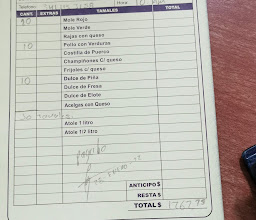 Telefono: Hora: 10 am
CANT. EXTRAS TAMALES TOTAL
10 Mole Rojo
Mole Verde
Rajas con queso
10 Pollo con Verduras
Costilla de Puerco
Champiñones C/ queso
Frijoles c/ queso
10 Dulce de Piña
Dulce de Fresa
Dulce de Elote
Acelgas con Queso
30 tamales
Atole 1 litro
Atole 1/2 litro
ANTICIPO $
RESTA $
TOTAL $